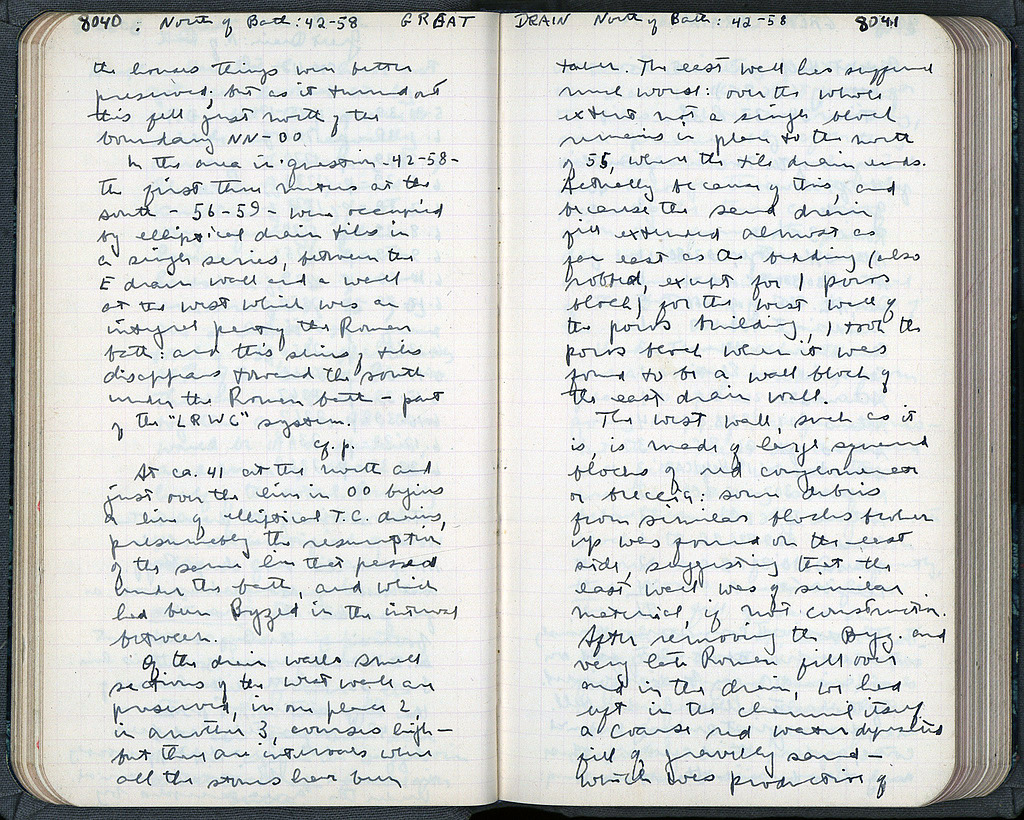 8040 : North of Bath: 42-58 GREAT
the houses things were better
preserved, but as it turned out
this fell just north of the
boundary NN-OO.
In the area in question - 42-58 -
the first three meters at the
south - 56-59 - were occupied
by elliptical drain tiles in
a single series, between the
E drain wall and a wall
at the west which was an
integral part of the Roman
bath: and this series of tiles
disappears toward the south
under the Roman bath - part
of the "LRWC" system.
cf. p.
At ca. 41 at the north and
just over the line in OO begins
a line of elliptical T.C. drains,
presumably the resumption
of the same line that passed
under the bath, and which
had been Byzed in the interval
between.
Of the drain walls small
sections of the west wall are
preserved, in one place 2,
in another 3, courses high -
but there are intervals where
all the stones have been
DRAIN North of Bath: 42-58 8041
taken. The east wall has suffered
much worst: over the whole
extent not a single block
remains in place to the north
of 55, where the tile drain ends.
Actually because of this, and
because the sand drain
fill extended almost as
far east as the bedding (also
robbed, except for 1 poros
block) for the west wall of
the poros building, I took the
poros block when it was
found to be a wall block of
the east drain wall.
The west wall, such as it
is, is made of large squared
blocks of red conglomerate
or breccia: some debris
from similar blocks broken
up was found on the east
side, suggesting that the
east wall was of similar
material, if not construction.
After removing the Byz. and
very late Roman fill over
and in the drain, we had
left in the channel itself
a coarse red water deposited
fill of gravelly sand -
which was productive of